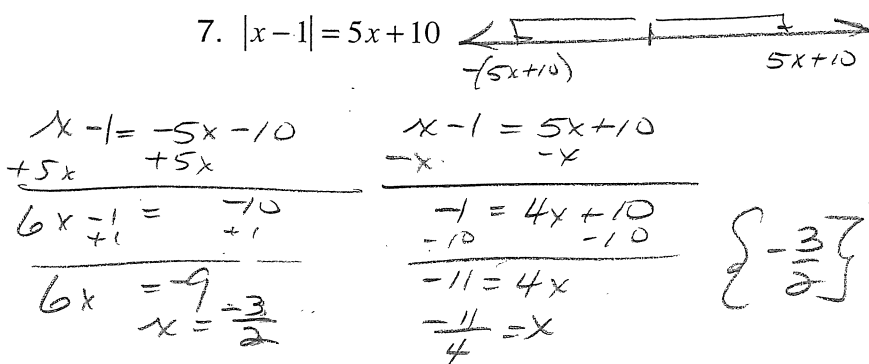 7. |x − 1| = 5x + 10
-(5x+10) 5x+10
x - 1 = -5x - 10
+5x +5x
6x - 1 = -10
+1 +1
6x = -9
x = -3/2
x - 1 = 5x + 10
-x -x
-1 = 4x + 10
-10 -10
-11 = 4x
-11/4 = x
{-3/2}